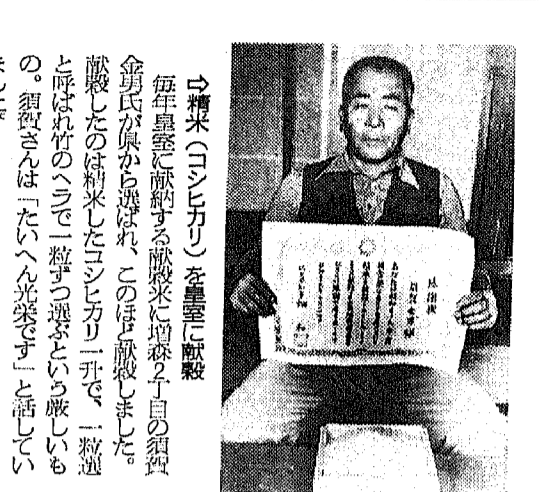 ⇨精米（コシヒカリ）を皇室に献穀
毎年皇室に献納する献穀米に増森2丁目の須賀
金男氏が県から選ばれ、このほど献穀しました。
献穀したのは精米したコシヒカリ一升で、一粒選
と呼ばれ竹のヘラで一粒ずつ選ぶという厳しいも
の。須賀さんは「たいへん光栄です」と話してい
ました